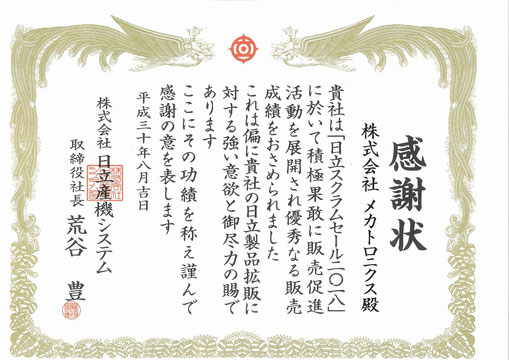 感謝状
株式会社 メカトロニクス殿
貴社は「日立スクラムセール二〇一八」
に於いて積極果敢に販売促進
活動を展開され優秀なる販売
成績をおさめられました
これは偏に貴社の日立製品拡販に
対する強い意欲と御尽力の賜で
あります
ここにその功績を称え謹んで
感謝の意を表します
平成三十年八月吉日
株式会社 日立産機システム
取締役社長 荒谷 豊